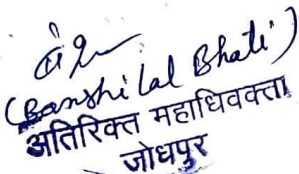 (Banshi Lal Bhati)
अतिरिक्त महाधिवक्ता
जोधपुर